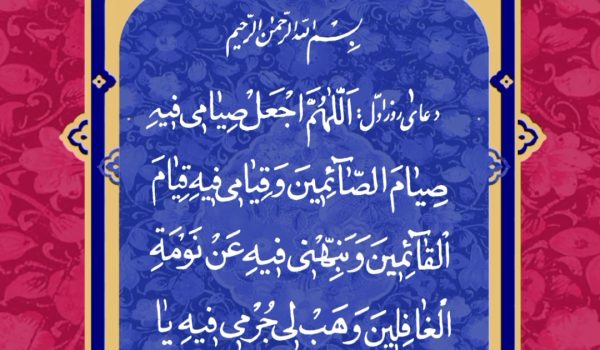 بِسْمِ اللهِ الرَّحْمٰنِ الرَّحِیمِ
دعای روز اوّل: اَللّٰهُمَّ اجْعَلْ صِیٰامی فیهِ
صِیٰامَ الصّٰآئِمِینَ وَ قِیٰامی فیهِ قِیٰامَ
الْقٰآئِمِینَ وَ نَبِّهْنی فیهِ عَنْ نَوْمَةِ
الْغٰافِلِینَ وَ هَبْ لی جُرْمی فیهِ یٰا